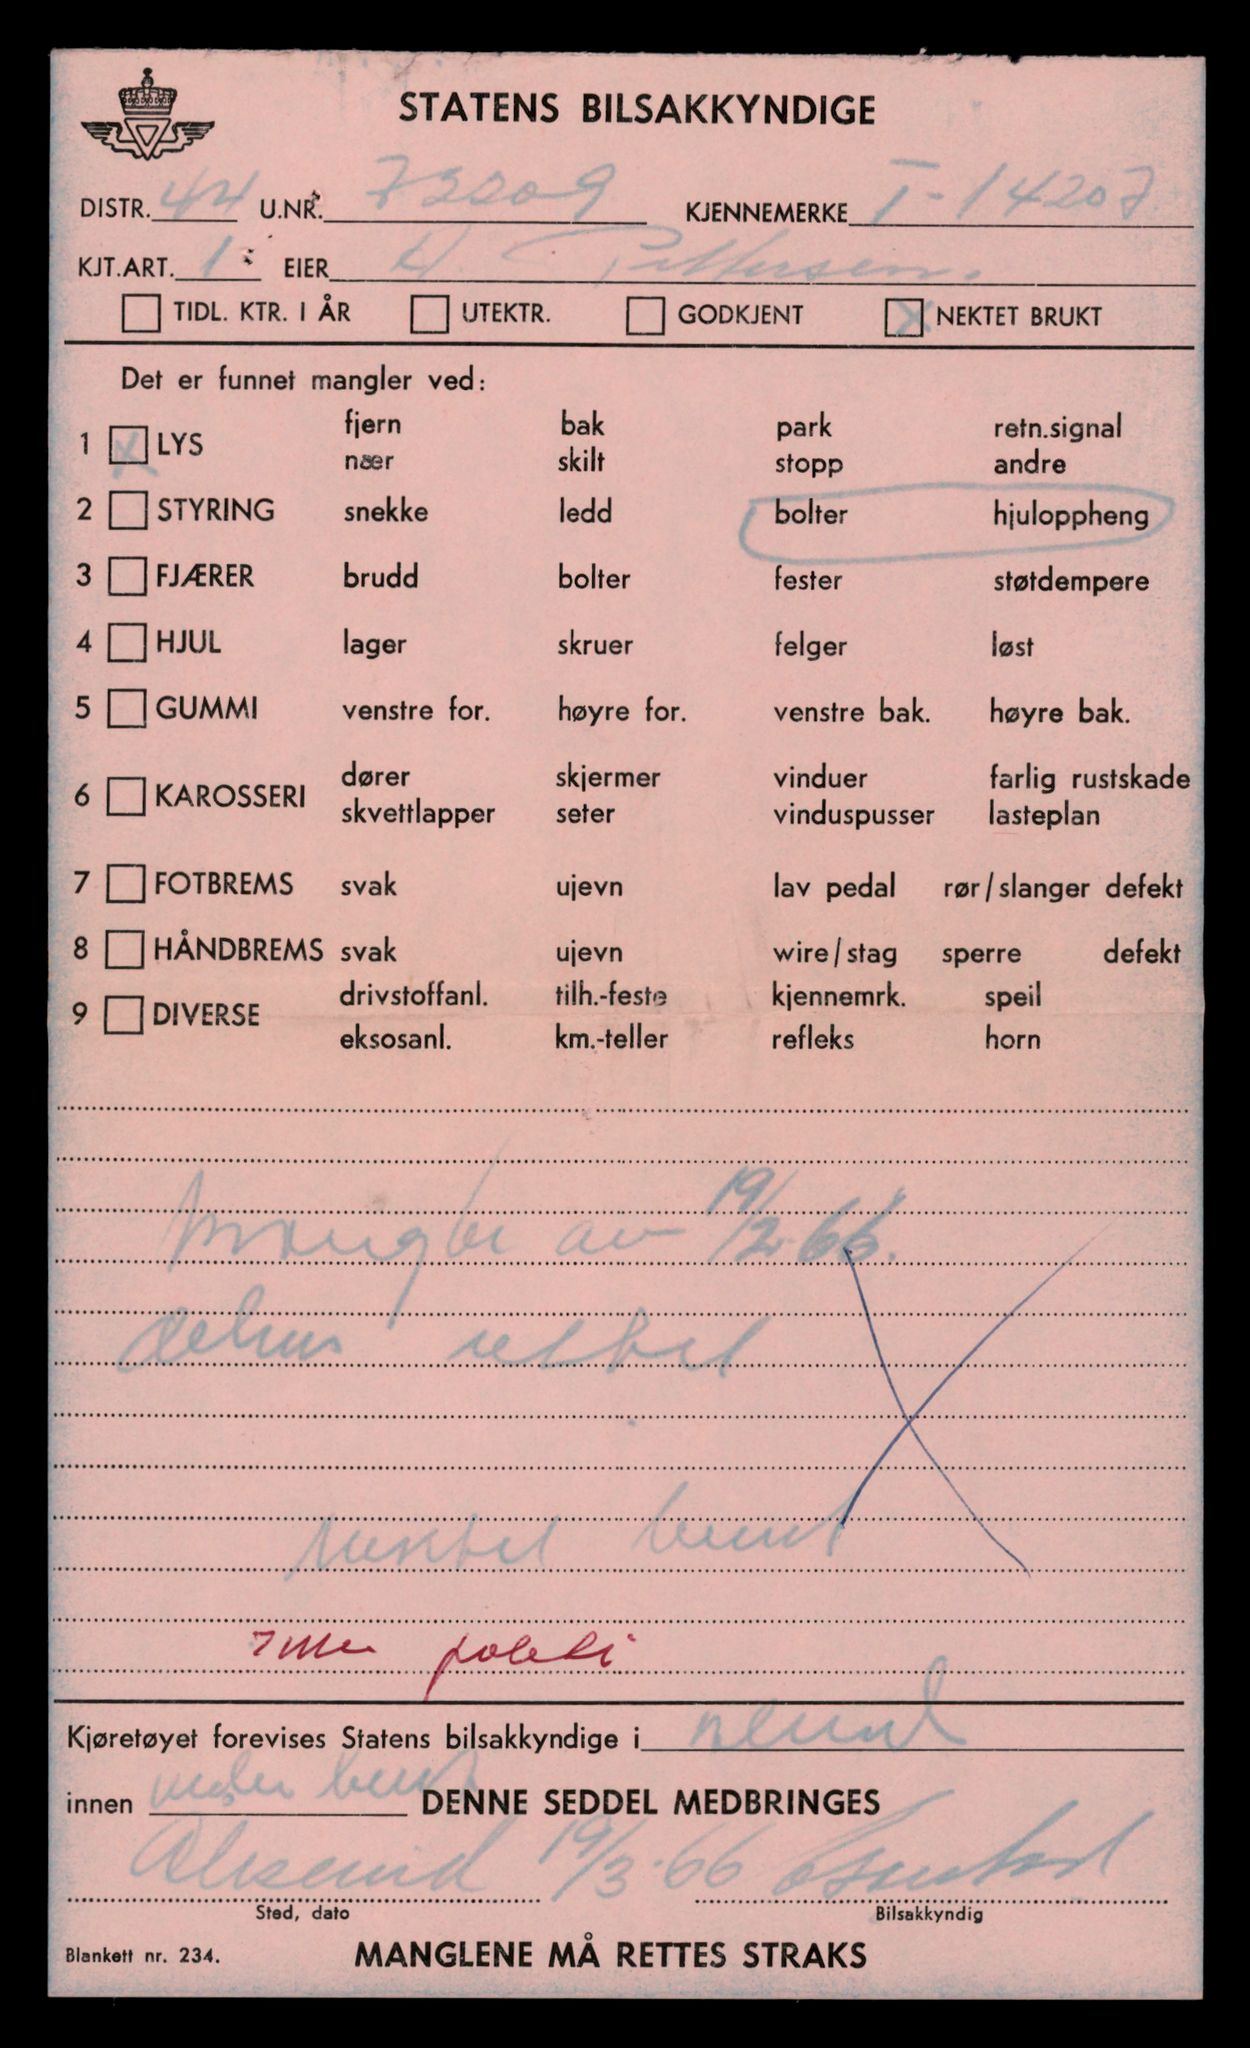 STATENS BILSAKKYNDIGE
DISTR. 44 U.NR. 73209 KJENNEMERKE T-14207
KJT.ART. 1 EIER H. Pettersen.
TIDL. KTR. I ÅR UTEKTR. GODKJENT X NEKTET BRUKT
Det er funnet mangler ved:
1 X LYS fjern bak park retn.signal
nær skilt stopp andre
2 STYRING snekke ledd bolter hjuloppheng
3 FJÆRER brudd bolter fester støtdempere
4 HJUL lager skruer felger løst
5 GUMMI venstre for. høyre for. venstre bak. høyre bak.
6 KAROSSERI dører skjermer vinduer farlig rustskade
skvettlapper seter vinduspusser lasteplan
7 FOTBREMS svak ujevn lav pedal rør/slanger defekt
8 HÅNDBREMS svak ujevn wire/stag sperre defekt
9 DIVERSE drivstoffanl. tilh.-feste kjennemrk. speil
eksosanl. km.-teller refleks horn
Mangler av 19/2-66.
delvis rettet
Nektet brukt
politi
Kjøretøyet forevises Statens bilsakkyndige i
innen DENNE SEDDEL MEDBRINGES
Ålesund 19/3-66
Sted, dato Bilsakkyndig
Blankett nr. 234. MANGLENE MÅ RETTES STRAKS